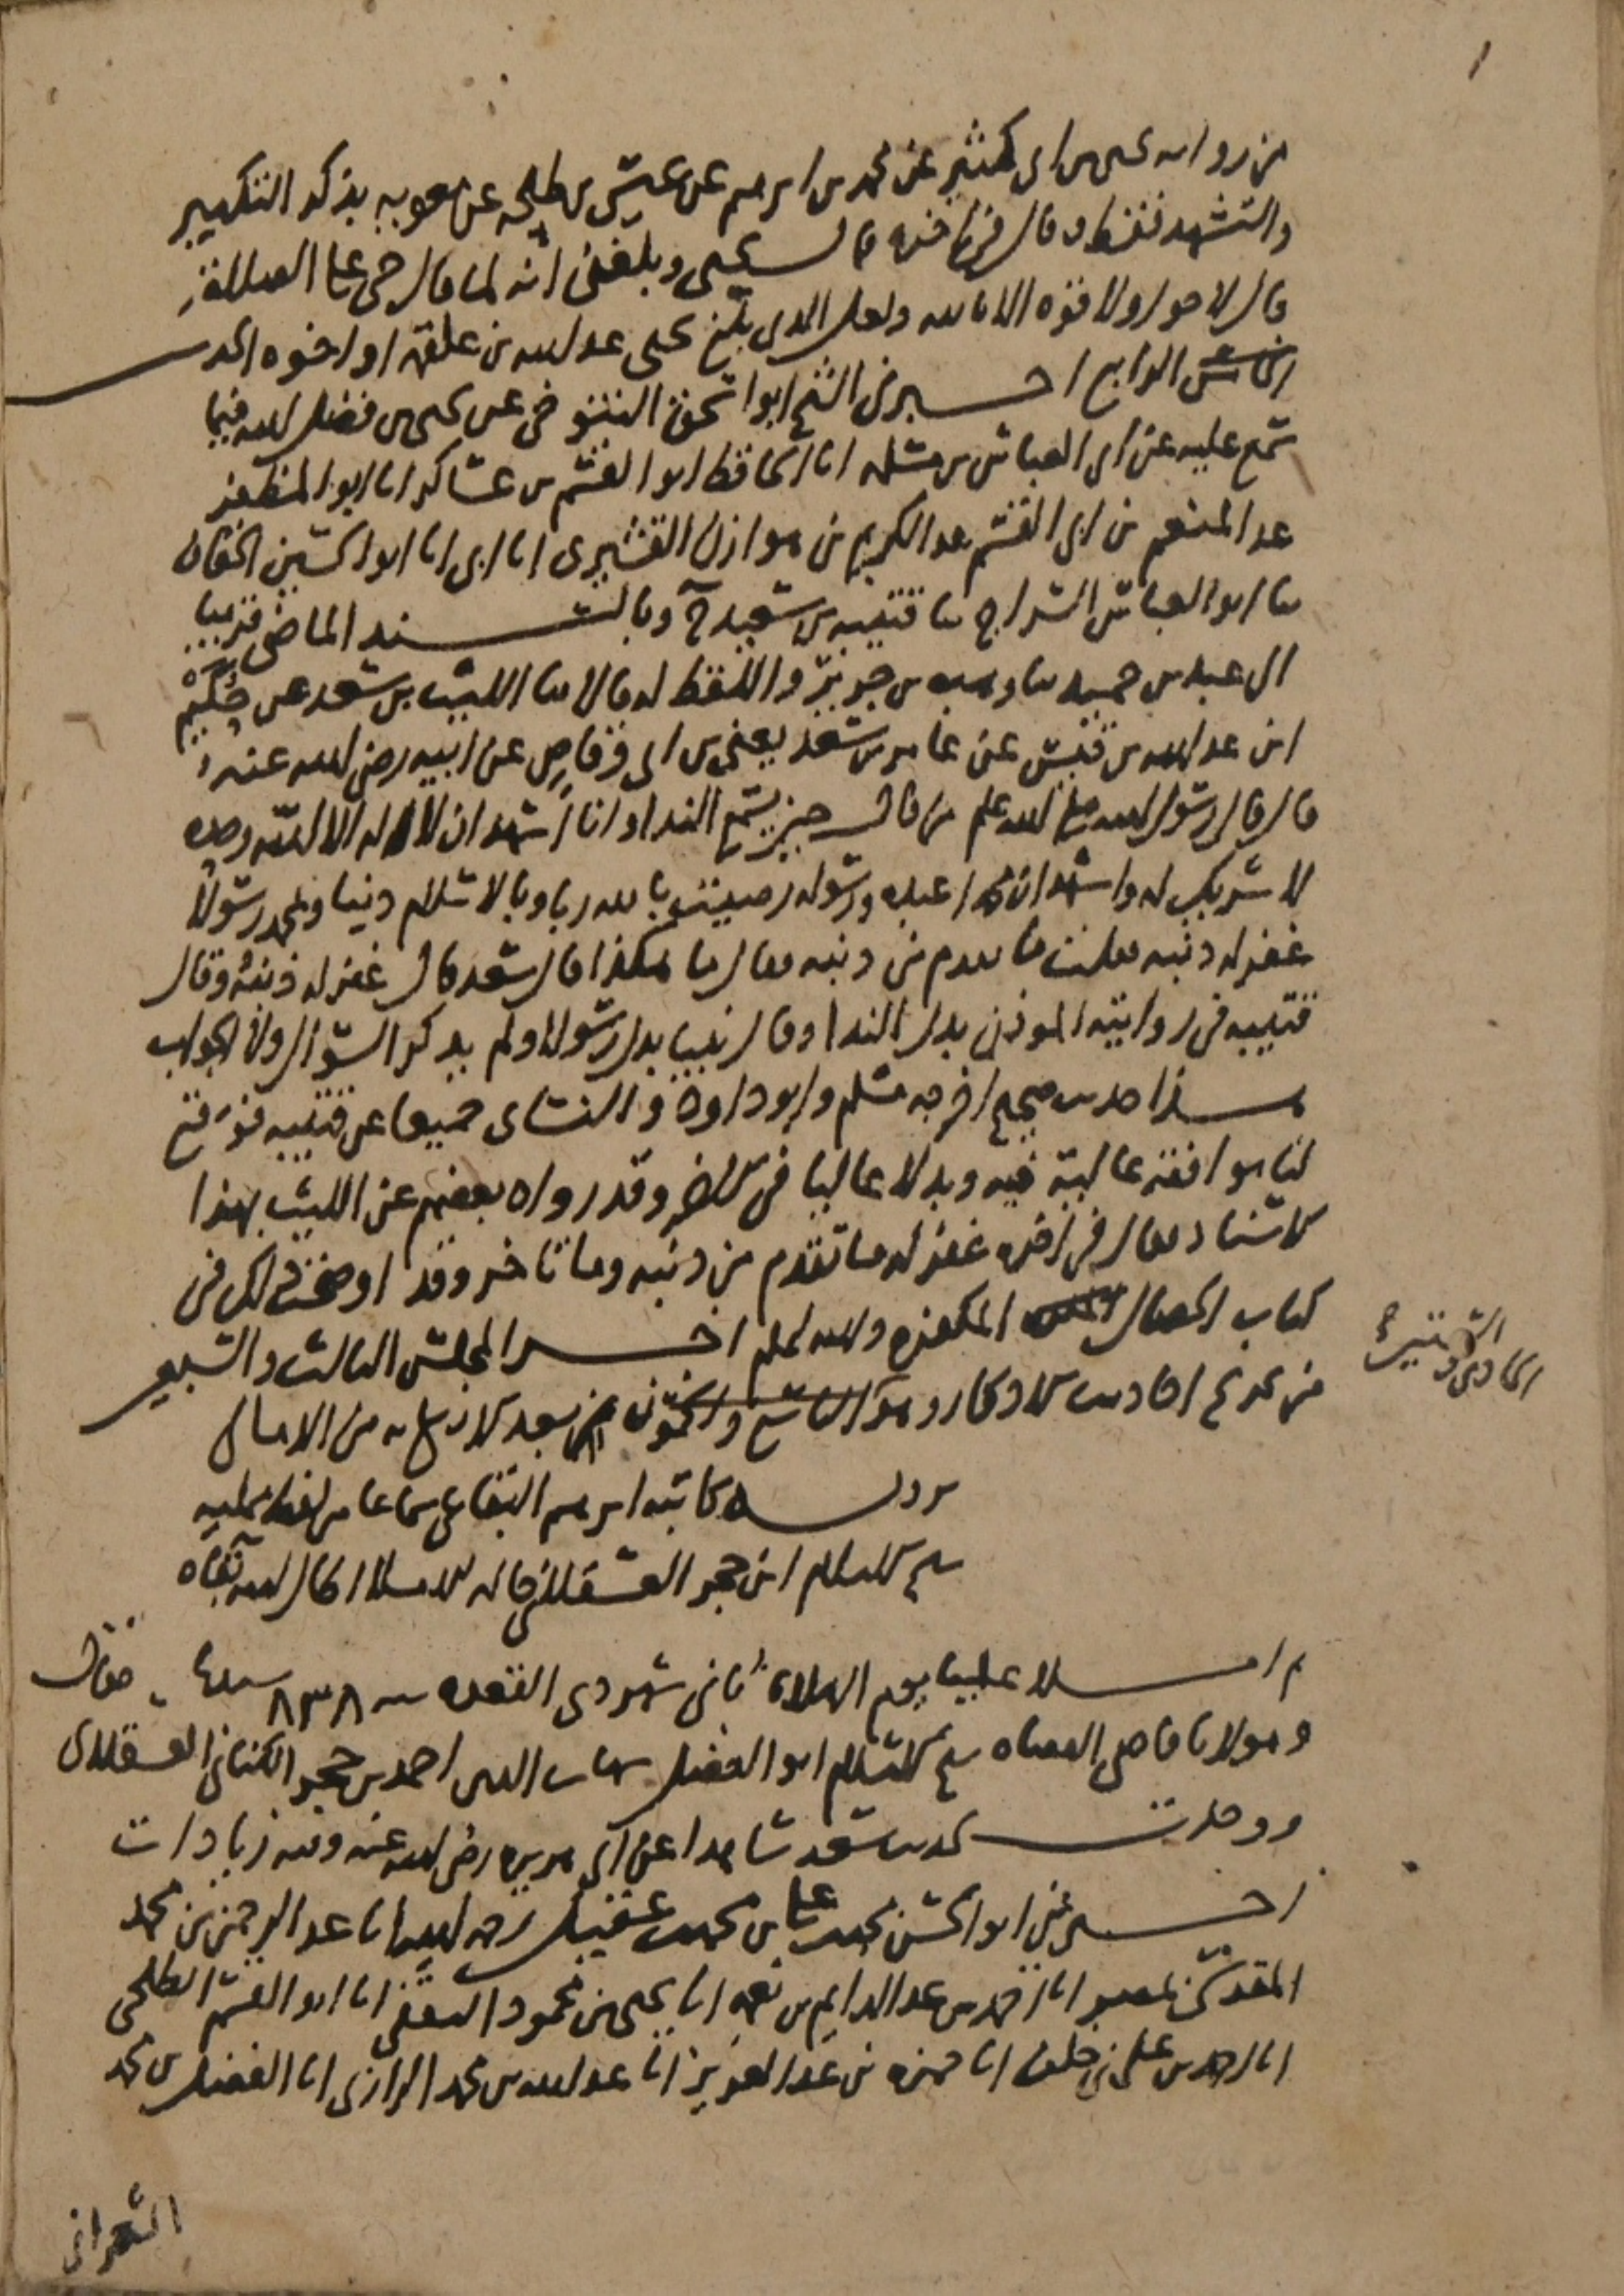 من رواية يحيى بن ابى كثير عن محمد بن ابرهيم عن عيسى بن طلحة عن معوية بذكر التكبير
والتشهد فقط وقال فى اخره قال يحيى وبلغنى انه لما قال حى على الصلاة
قال لا حول ولا قوة الا بالله ولعل الذى بلغ يحيى عبد الله بن علقمة او اخوه الحديث
الرابع اخبرنى الشيخ ابو اسحق التنوخى عن يحيى بن فضل الله فيما
سمع عليه عن ابى العباس بن مسلمة انا الحافظ ابو القسم بن عساكر انا ابو المظفر
عبد المنعم بن ابى القسم عبد الكريم بن هوازن القشيرى انا ابى انا ابو الحسين الخفاف
ثنا ابو العباس السراج ثنا قتيبة بن سعيد ح وبالسند الماضى قريبا
الى عبد بن حميد ثنا وهب بن جرير واللفظ له قالا ثنا الليث بن سعد عن حُكيم
ابن عبد الله بن قيس عن عامر بن سعد يعنى بن ابى وقاص عن ابيه رضى الله عنه
قال قال رسول الله صلى الله عليه وسلم من قال حين يسمع الندا وانا اشهد ان لا اله الا الله وحده
لا شريك له واشهد ان محمدا عبده ورسوله رضيت بالله ربا وبالاسلام دينا وبمحمد رسولا
غفر له ذنبه فقلت ما تقدم من ذنبه فقال ما هكذا قال سعد قال غفر له ذنبه وقال
قتيبة فى روايته الموذن بدل الندا وقال نبيا بدل رسولا ولم يذكر السوال ولا الجواب
هذا حديث صحيح اخرجه مسلم وابو داود والنساى جميعا عن قتيبة فوقع
لنا موافقة عالية فيه وبدلا عاليا فى الاخر وقد رواه بعضهم عن الليث بهذا
الاسناد فقال فى اخره غفر له ما تقدم من ذنبه وما تاخر وقد اوضحت ذلك فى
كتاب الخصال المكفرة والله اعلم اخر المجلس الثالث والسبعين
من تخريج احاديث الاذكار وهو التاسع بعد الاربعمائة من الامالى
رواية كاتبه ابرهيم البقاعى سماعا من لفظ ممليه
شيخ الاسلام ابن حجر العسقلانى حالة الاملاء اطال الله بقاه
الحادى والستين
ثم املا علينا يوم الثلاثاء ثانى شهر ذى القعدة سنة ٨٣٨ فقال
ومولانا قاضى القضاة شيخ الاسلام ابو الفضل شهاب الدين احمد بن حجر الكنانى العسقلانى
ووجدت لحديث سعد شاهدا عن ابى هريرة رضى الله عنه وفيه زيادات
اخبرنى ابو الحسن محمد بن على بن محمد بن عقيل رحمه الله انا عبد الرحمن بن محمد
المقدسى بمصر انا احمد بن عبد الدايم بن نعمة انا يحيى بن محمود الثقفى انا ابو القسم الطلحى
انا احمد بن على بن خلف انا حمزة بن عبد العزيز انا عبد الله بن محمد الرازى انا الفضل بن محمد
الشعرانى